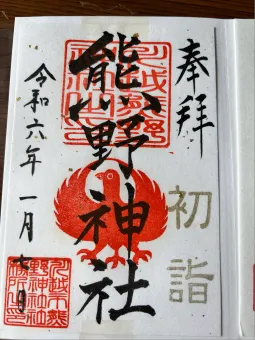 奉拝
初詣
熊野神社
令和六年一月七日